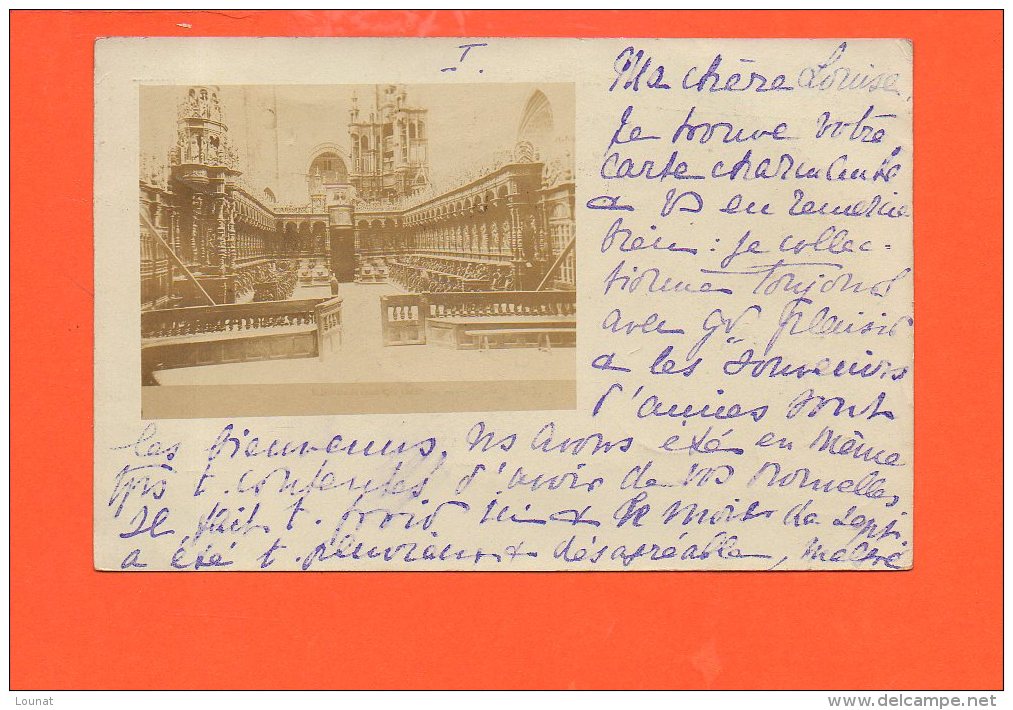 I.
Ma chère Louise,
Je trouve votre
carte charmante
& vs en remercie
bien : je collec-
tionne toujours
avec gd plaisir
& les souvenirs
d'amies sont
les bienvenus. Ns avons été en même
tps t. contentes d'avoir de vos nouvelles
Il fait t. froid ici & le mois de sept.
a été t. pluvieux & désagréable, malgré
Lounat
www.delcampe.net